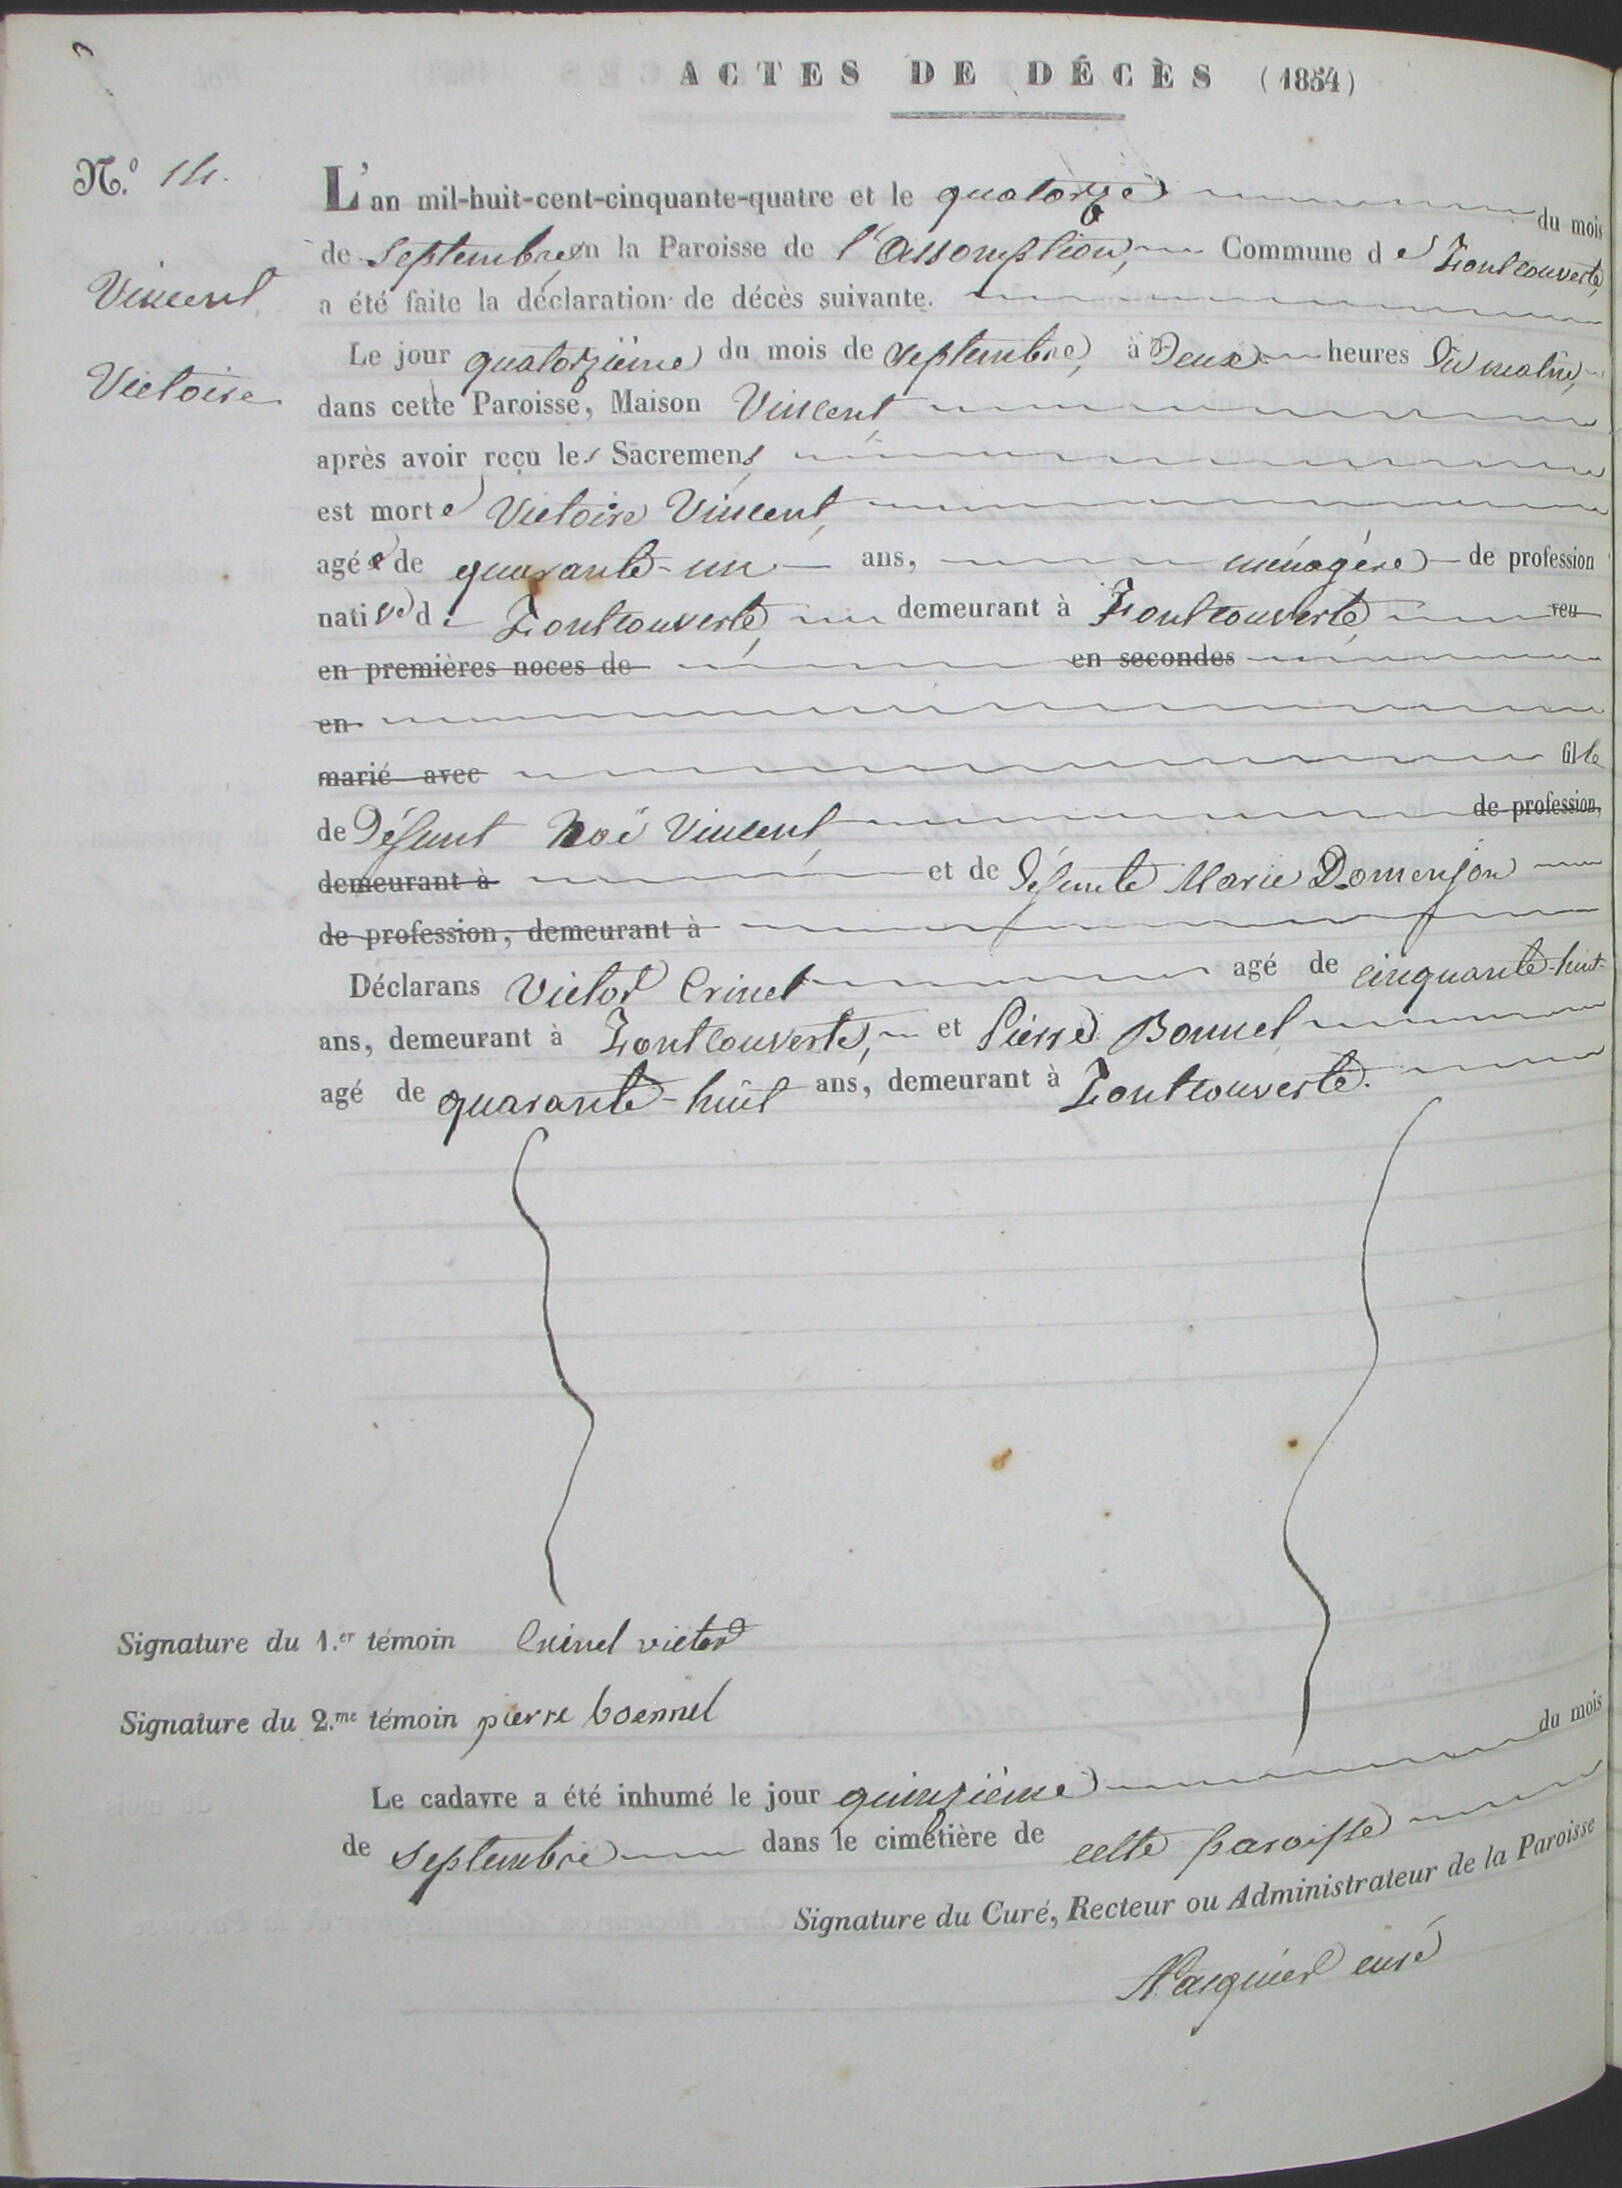 ACTES DE DÉCÈS (1854)
N.º 14.
Vincent
Victoire
L'an mil-huit-cent-cinquante-quatre et le quatorze du mois
de septembre, en la Paroisse de l'Assomption, Commune de Fontcouverte,
a été faite la déclaration de décès suivante.
Le jour quatorzième du mois de septembre, à Deux heures du matin,
dans cette Paroisse, Maison Vincent,
après avoir reçu les Sacremens,
est morte Victoire Vincent,
agée de quarante-un ans, ménagère de profession
native de Fontcouverte, demeurant à Fontcouverte, veu
en premières noces de en secondes
en
marié avec fille
de Défunt Noë Vincent, de profession,
demeurant à et de défunte Marie Domenjon
de profession, demeurant à
Déclarans Victor Crinel agé de cinquante-huit
ans, demeurant à Fontcouverte, et Pierre Bonnel
agé de quarante-huit ans, demeurant à Fontcouverte.
Signature du 1.er témoin Crinel victor
Signature du 2.me témoin pierre bonnel
Le cadavre a été inhumé le jour quinzième du mois
de septembre dans le cimetière de cette paroisse
Signature du Curé, Recteur ou Administrateur de la Paroisse
curé